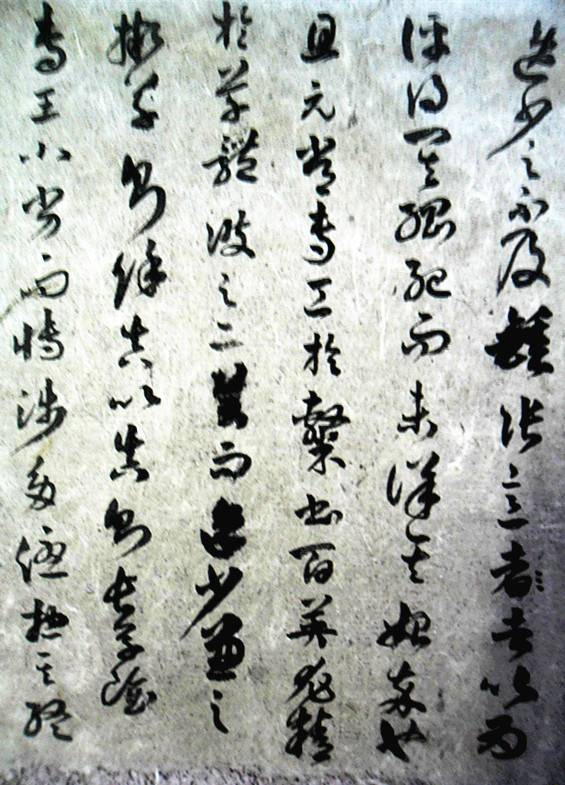 逸少之不及鍾張意者以為
評得其綱紀而未詳其始卒也
且元常專工於隸書百英尤精
於草體彼之二美而逸少兼之
擬草則餘真比真則長草雖
專工小劣而博涉多優摠其終